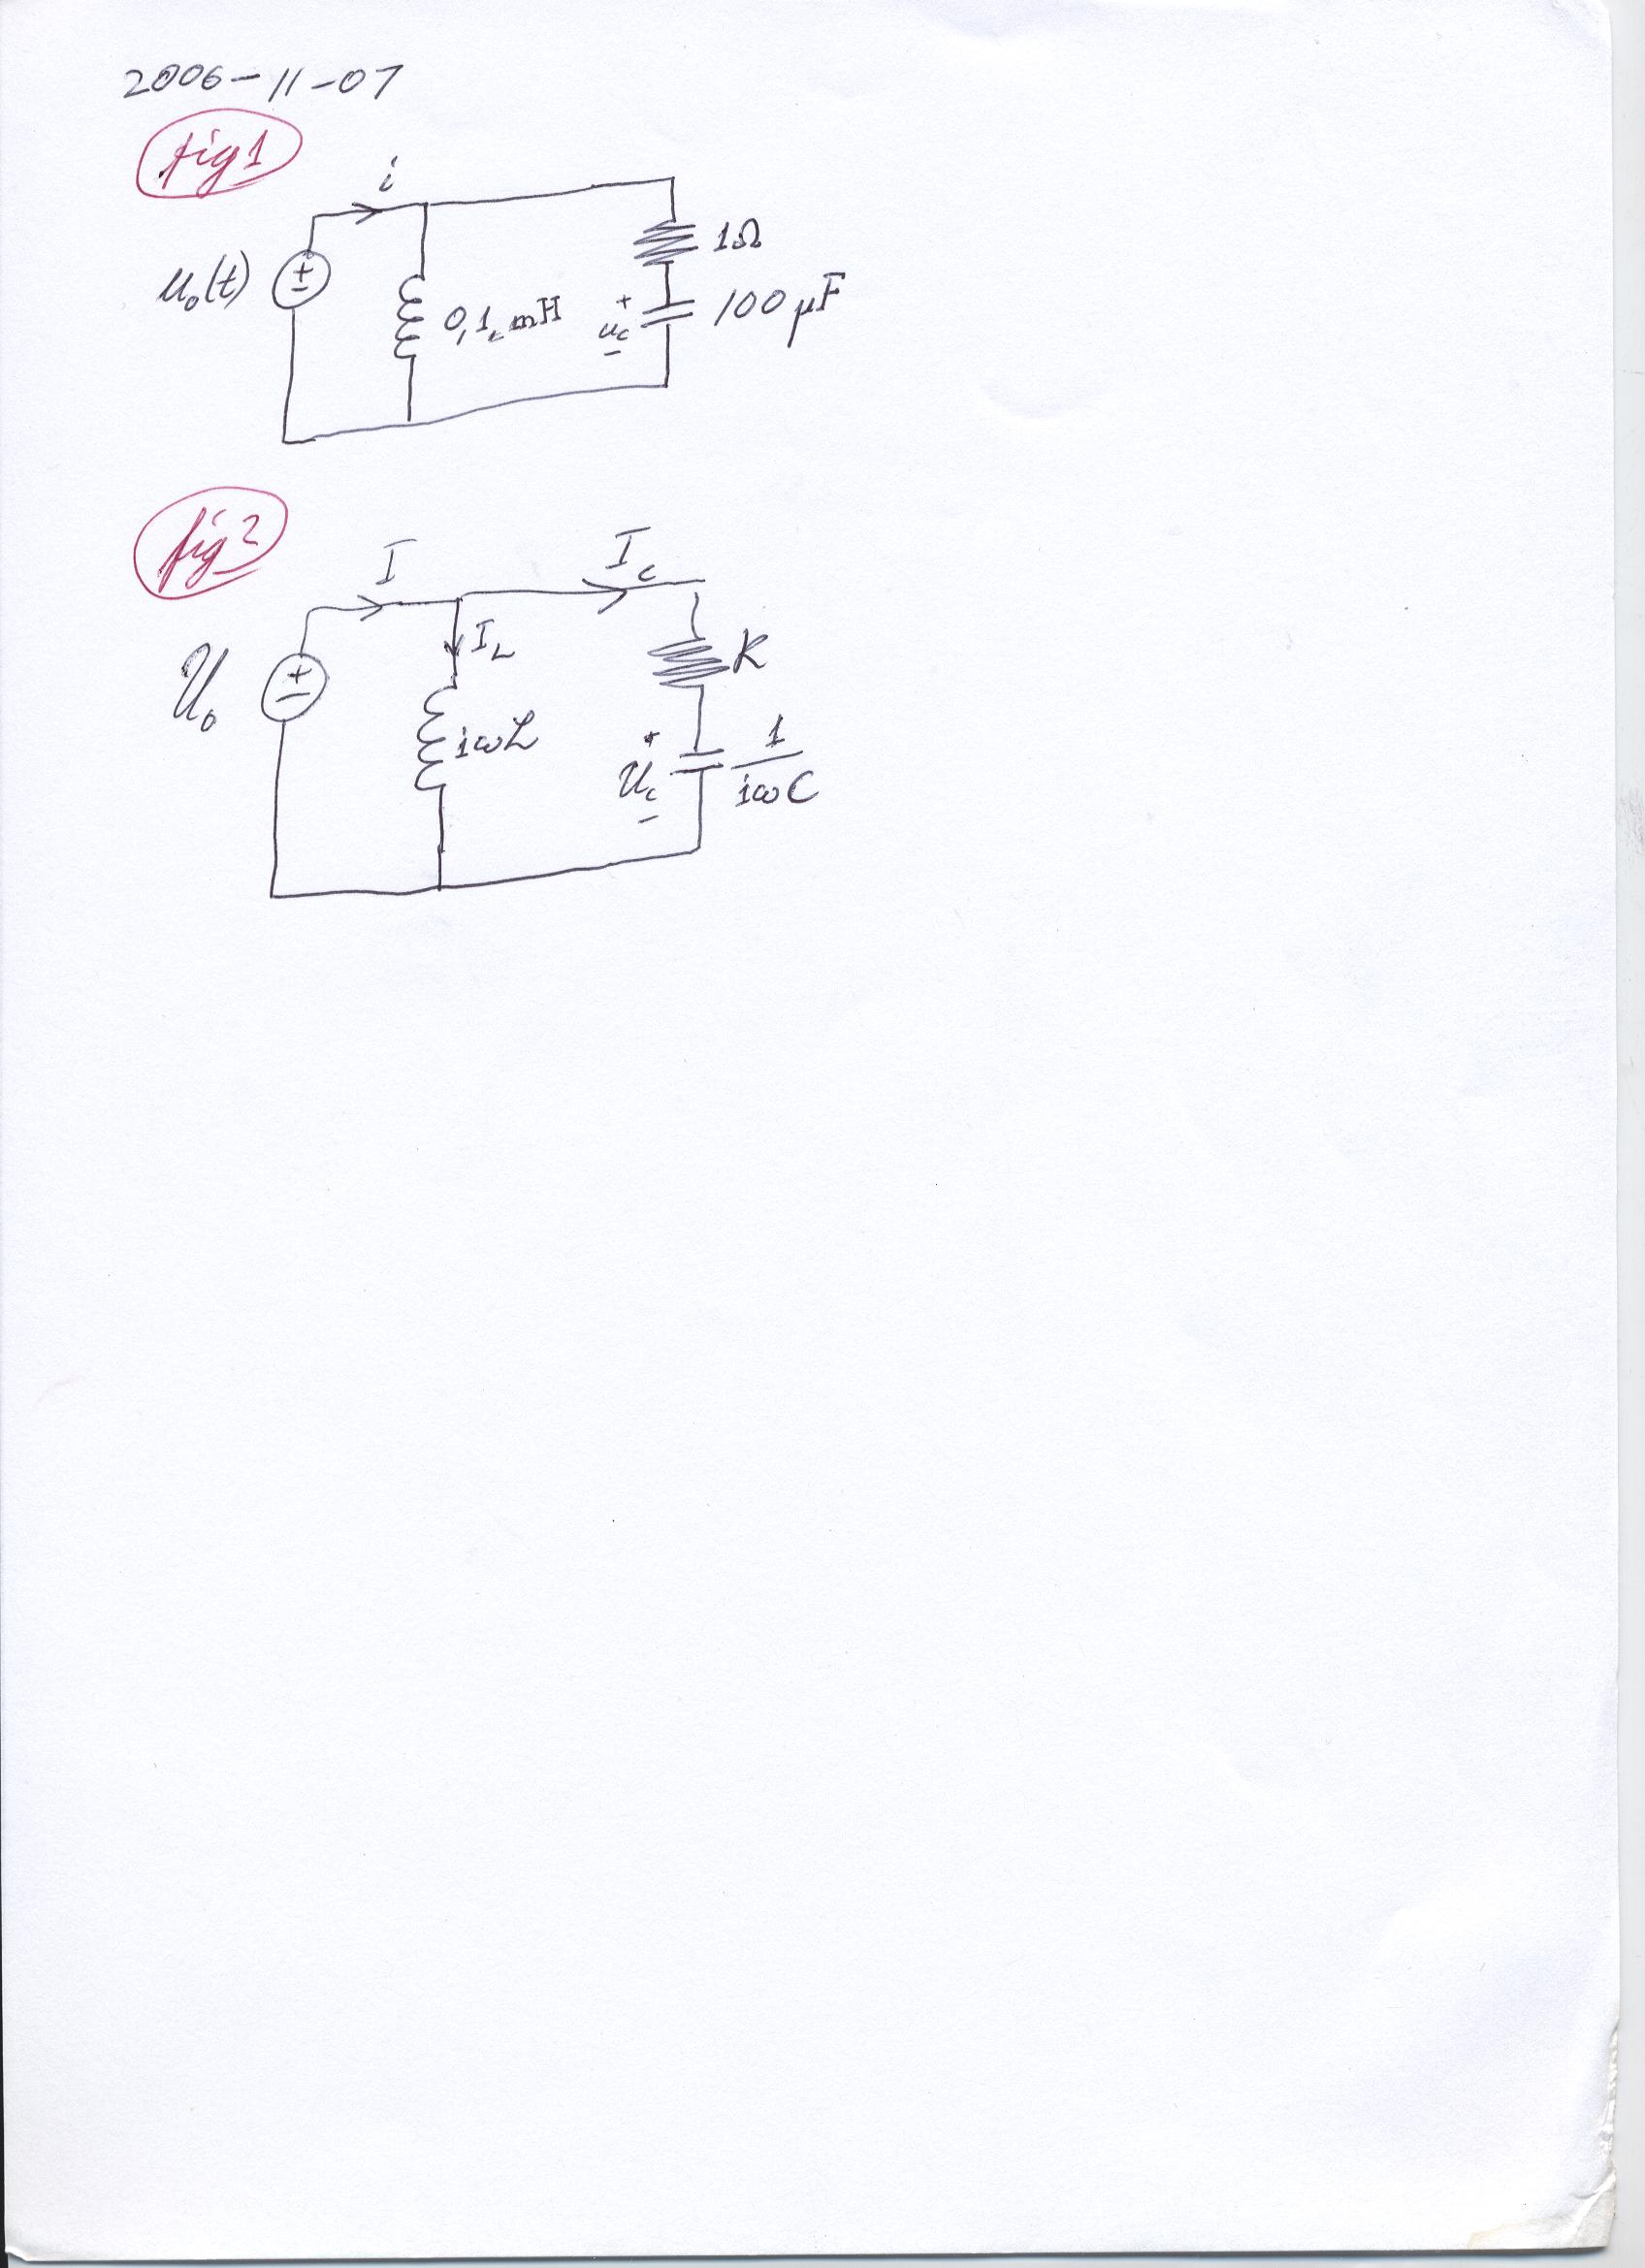 2006-11-07
fig1
i
u₀(t)
+
-
0,1 mH
1Ω
+
u_c
-
100 µF
fig 2
I
I_c
I_L
U₀
+
-
iωL
R
+
U_c
-
1
iωC